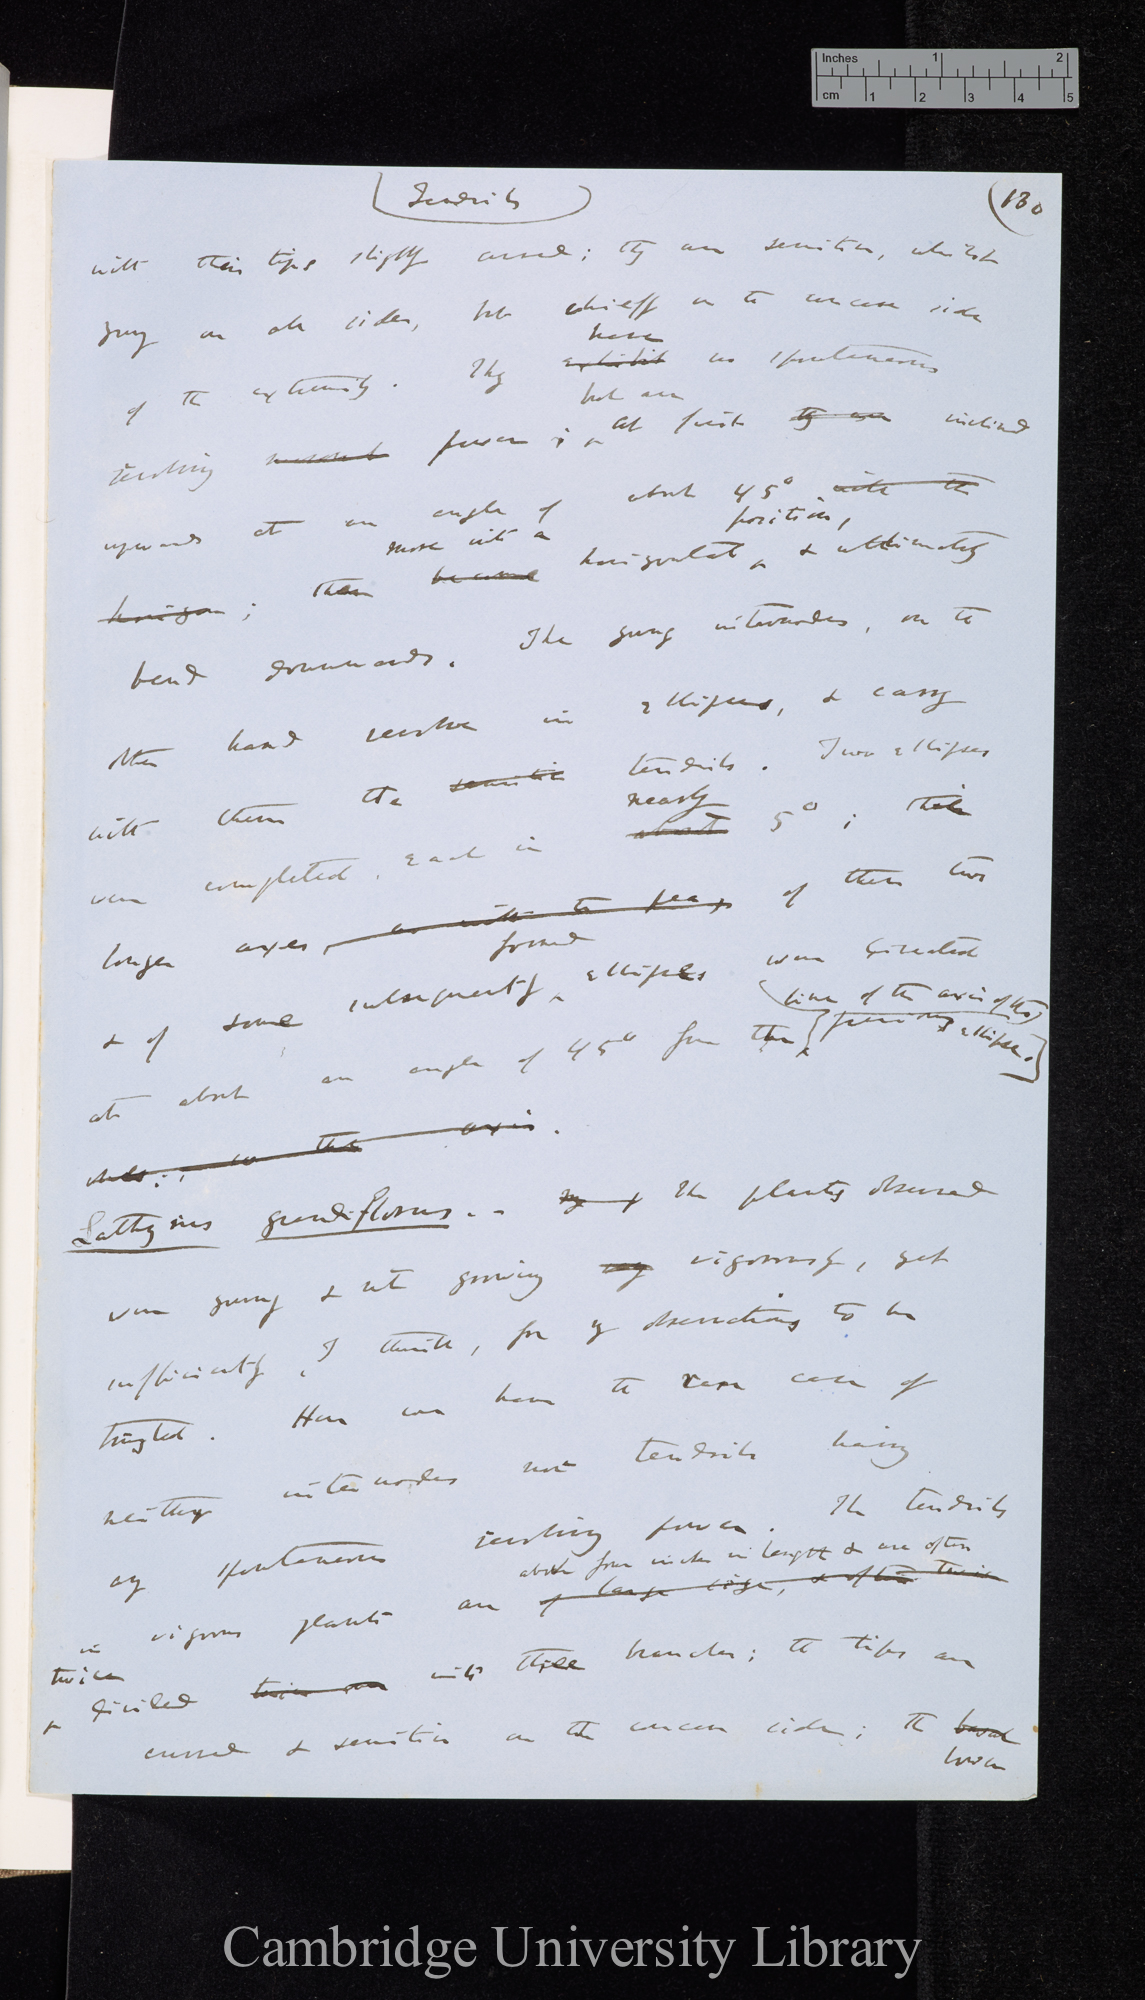 Inches 1 2
cm 1 2 3 4 5
(Tendrils) (130
with their tips slightly curved; they are sensitive, whilst
young on all sides, but chiefly on the concave side
have
of the extremity. They exhibit no spontaneous
but are
revolving movement power; at first they are inclined
upwards at an angle of about 45° with the
move into a position,
horizon; then become horizontal, & ultimately
bend downwards. The young internodes, on the
other hand revolve in ellipses, & carry
with them the sensitive tendrils. Two ellipses
nearly
were completed, each in about 5°; their
longer axes, as with the pea, of these two
formed
& of some subsequently ellipses were directed
line of the axis of the
at about an angle of 45° from the previous ellipse.
to the axis.
Lathyrus grandiflorus.— The plants observed
were young & not growing very vigorously, yet
sufficiently, I think, for my observations to be
trusted. Here we have the rare case of
neither internodes nor tendrils having
any spontaneous revolving power. The tendrils
above four inches in length & are often
in vigorous plants are of large size, & often twice
twice
& divided twice or into three branches; the tips are
curved & sensitive on the concave side; the basal
lower
Cambridge University Library